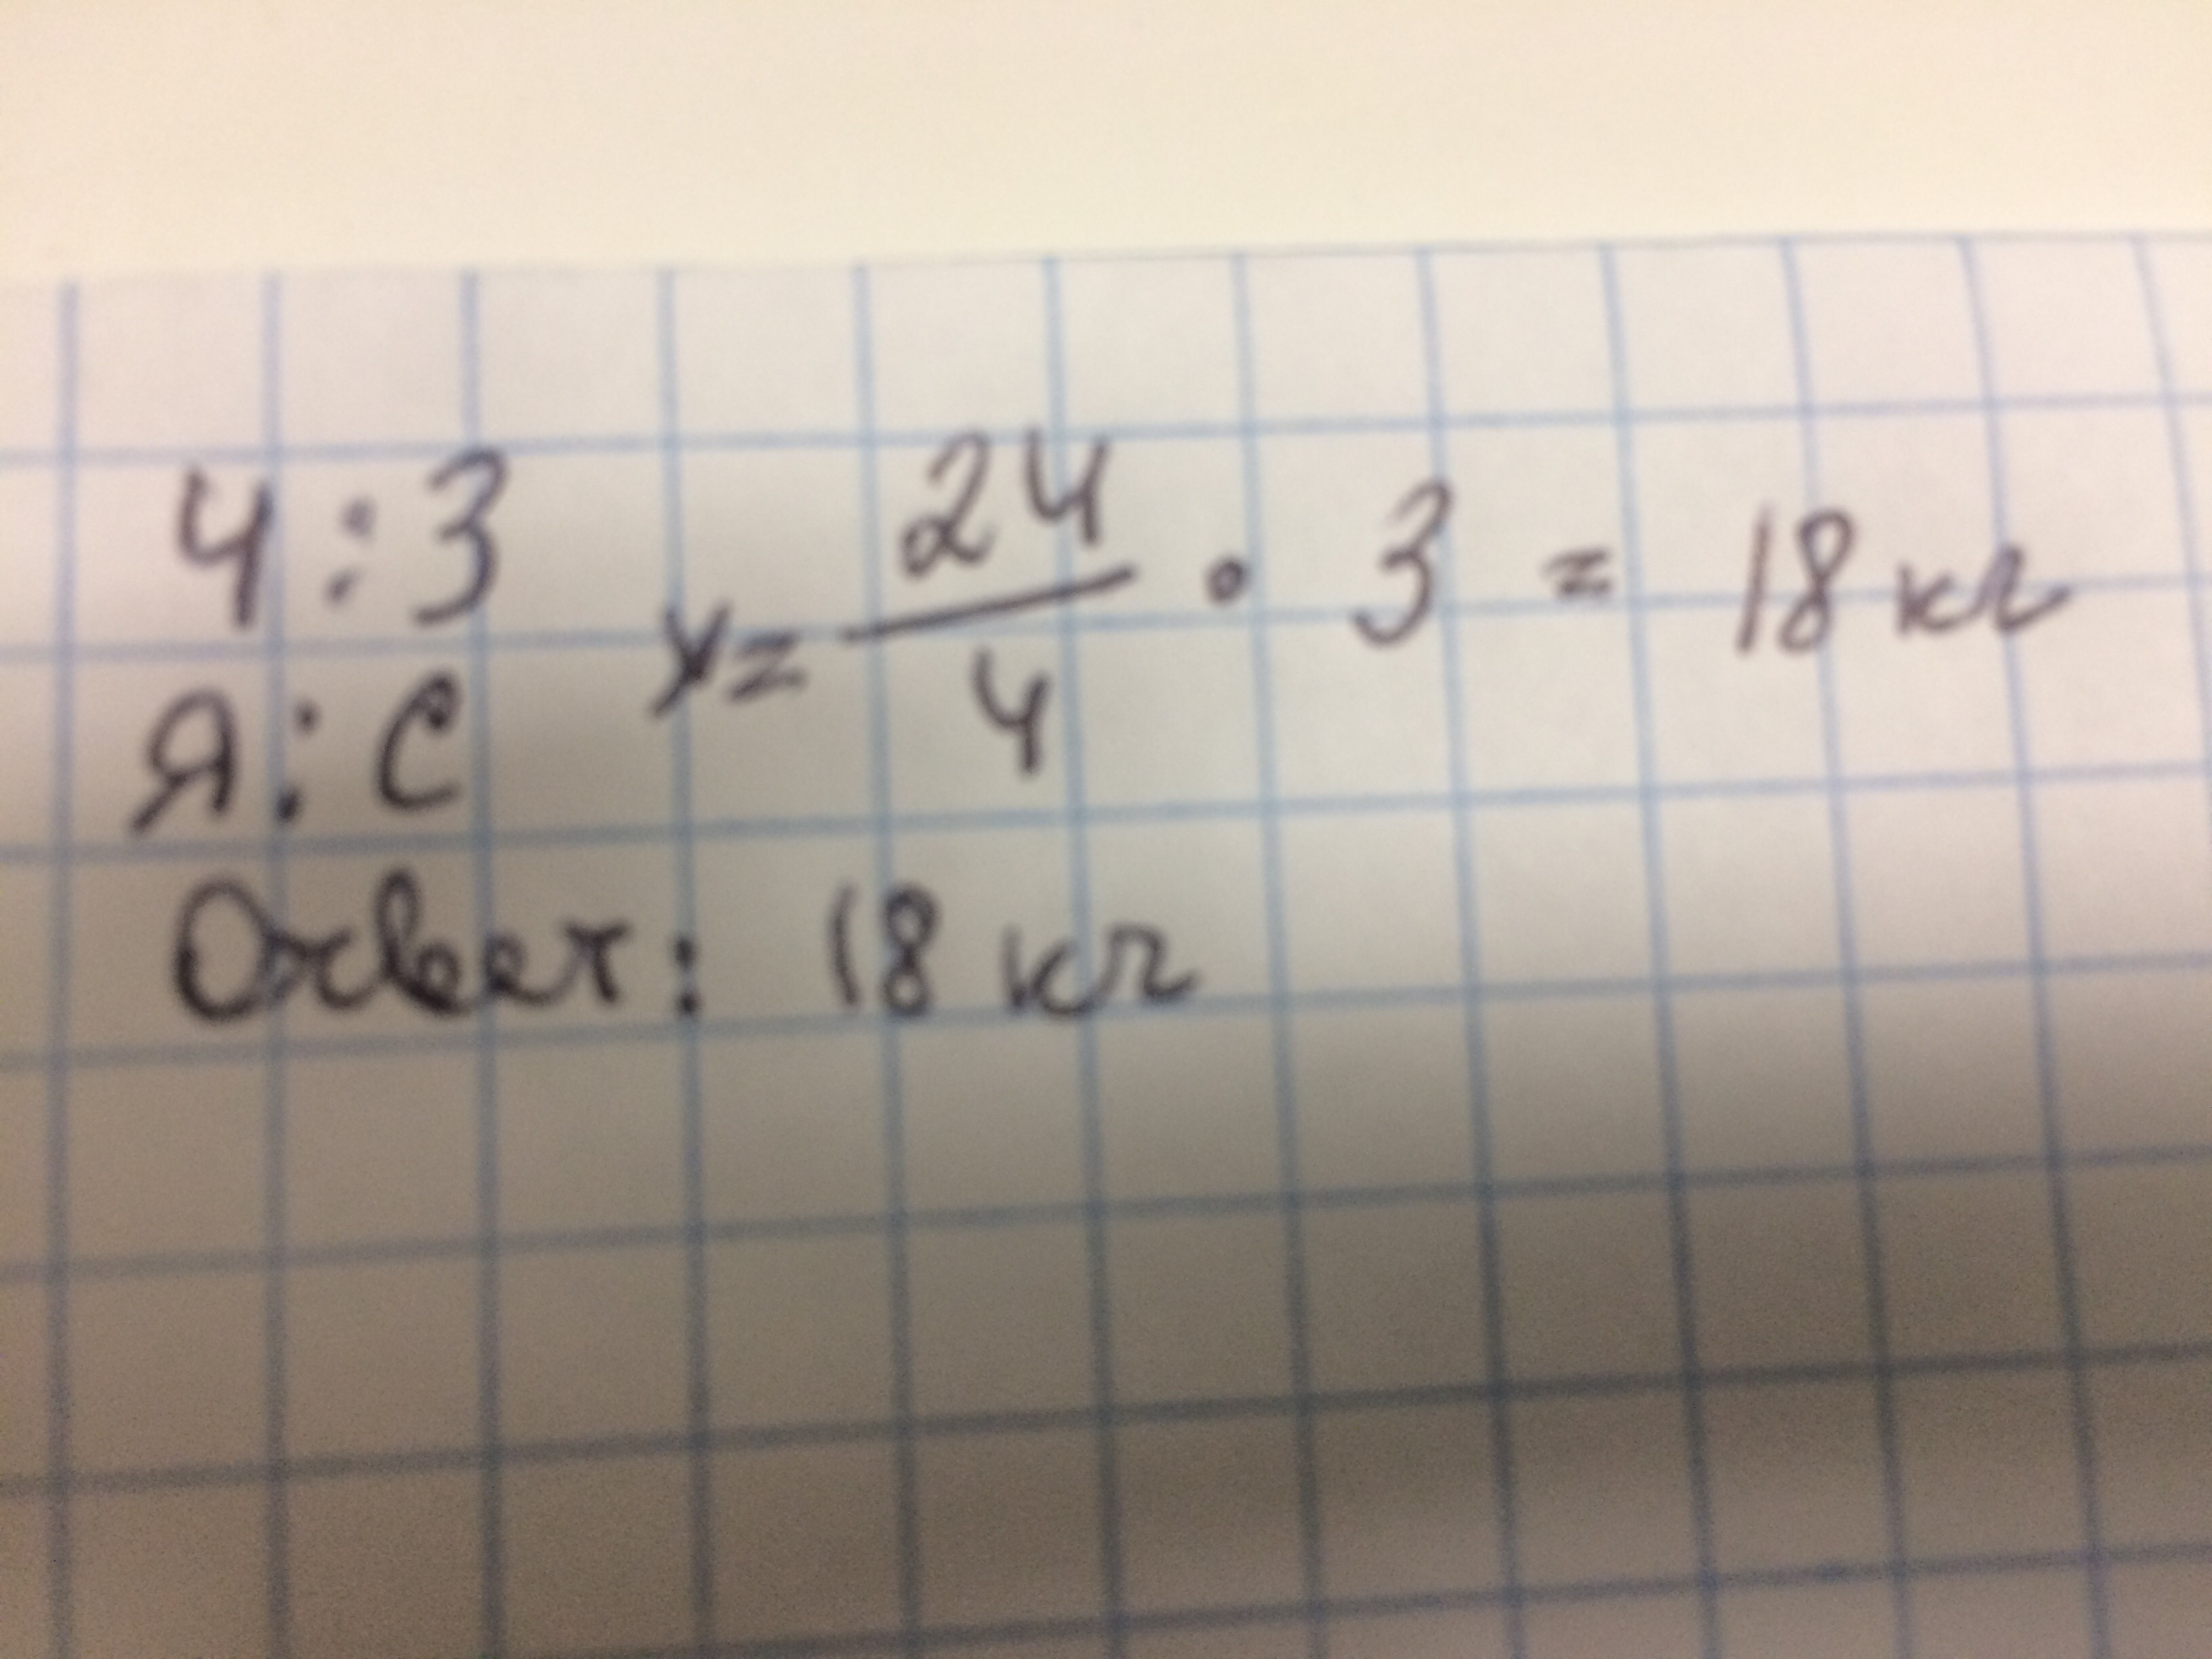 4 : 3 x = 24/4 · 3 = 18 кг
Я : С
Ответ: 18 кг